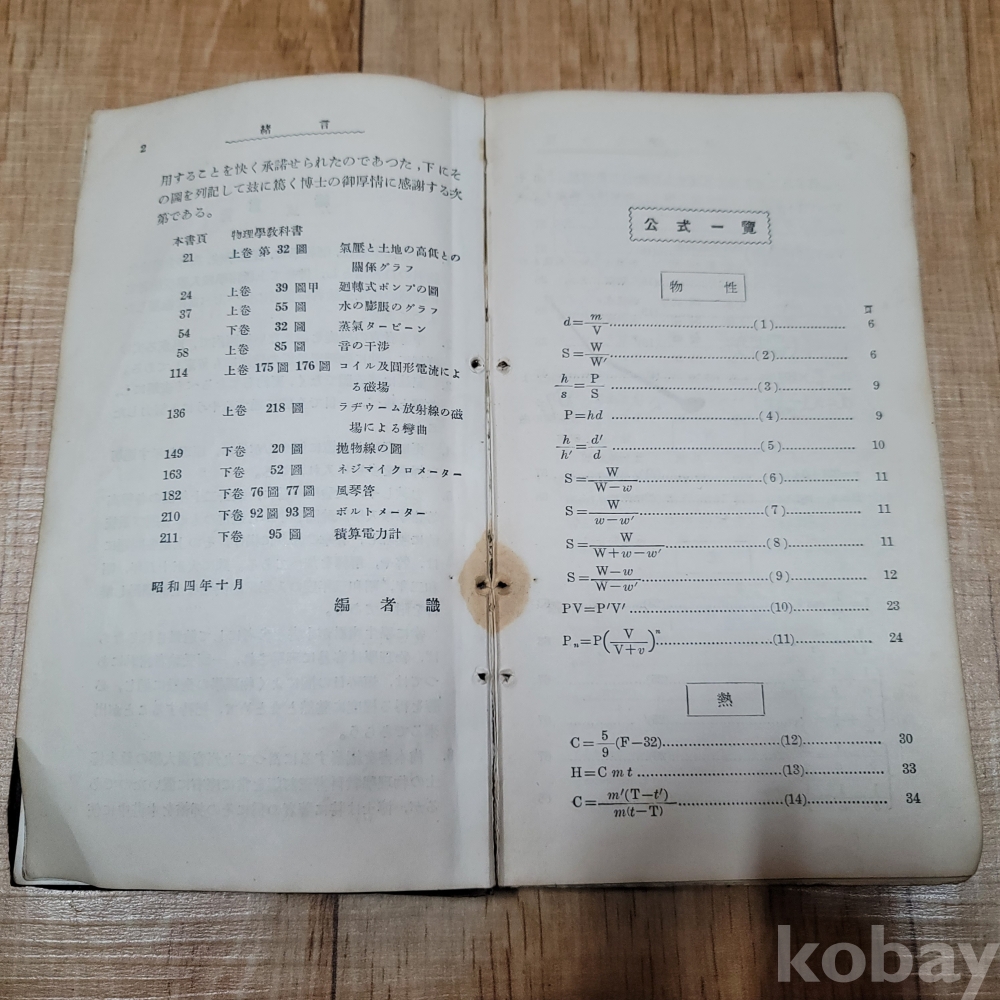 2
緒言
用することを快く承諾せられたのであつた，下にそ
の圖を列記して玆に篤く博士の御厚情に感謝する次
第である。
本書頁 物理學教科書
21 上卷 第 32 圖 氣壓と土地の高低との
關係グラフ
24 上卷 39 圖甲 廻轉式ポンプの圖
37 上卷 55 圖 水の膨脹のグラフ
54 下卷 32 圖 蒸氣タービーン
58 上卷 85 圖 音の干渉
114 上卷 175 圖 176 圖 コイル及圓形電流によ
る磁場
136 上卷 218 圖 ラヂウーム放射線の磁
場による彎曲
149 下卷 20 圖 抛物線の圖
163 下卷 52 圖 ネジマイクロメーター
182 下卷 76 圖 77 圖 風琴管
210 下卷 92 圖 93 圖 ボルトメーター
211 下卷 95 圖 積算電力計
昭和四年十月
編者識
公式一覽
物性
頁
d=m/V……(1)……6
S=W/W'……(2)……6
h/s=P/S……(3)……9
P=hd……(4)……9
h/h'=d'/d……(5)……10
S=W/(W−w)……(6)……11
S=W/(w−w')……(7)……11
S=W/(W+w−w')……(8)……11
S=(W−w)/(W−w')……(9)……12
PV=P'V'……(10)……23
Pₙ=P(V/(V+v))ⁿ……(11)……24
熱
C=5/9(F−32)……(12)……30
H=Cmt……(13)……33
C=m'(T−t')/m(t−T)……(14)……34
kobay